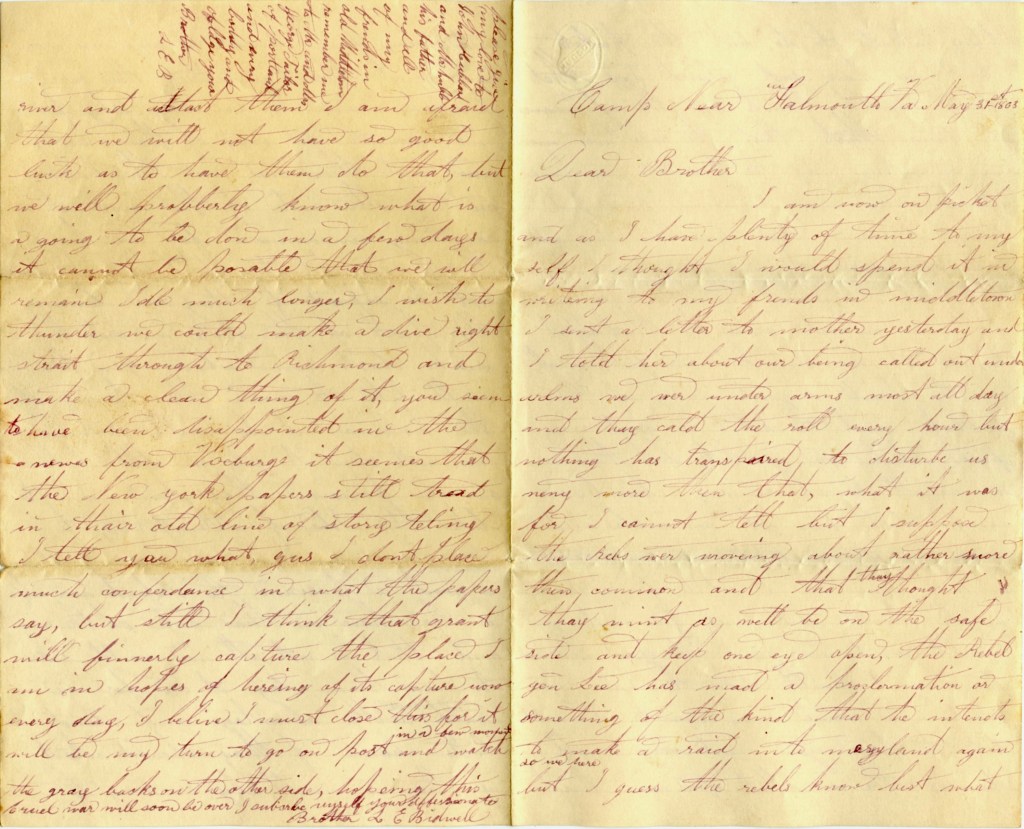 Camp Near Falmouth Va May 31st 1863
Dear Brother
I am now on picket
and as I have plenty of time to my
self I thought I would spend it in
writeing to my frends in middletown
I sent a letter to mother yesterday and
I told her about our being called out under
arms we wer under arms most all day
and thay cald the roll every hour but
nothing has transpaired, to disturbe us
neny more then that, what it was
for, I cannot tell but I suppose
the rebs wer moveing about rather more
then common and that thay thought
thay mint as well be on the safe
side and keep one eye open, the Rebel
gen Lee has mad a proclormation or
something of the kind that he intends
to make a raid in to maryland again
so we here
but I guess the rebels know best what
ever and at last them I am afraid
that we will not have so good
luck as to have them do that, but
we will probberly know what is
a going to be don in a few days
it cannot be posable that we will
remain Idle much longer, I wish to
thunter we could make a dive right
strait through to Richmond and
make a clean thing of it, you seem
to have been disappointed in the
news from Vicburgs it seemes that
the New york papers still tread
in thair old line of story teling
I tell you what gus I dont place
much conferdance in what the papers
say, but still I think that grant
will finnerly capture the place I
am in hopes of hereing of its capture now
every day, I belive I must close this for it
will be my turn to go on post in a few moments and watch
the gray backs on the other side, hopeing this
cruel war will soon be over I suberbe myself your affersionate
Brother L E Bidwell
please give
my love to
and
his father
and all
of my
frends in
old Middletown
remember me
to
george
of portland
and every
bendy and
oblige your
Brother
L E B